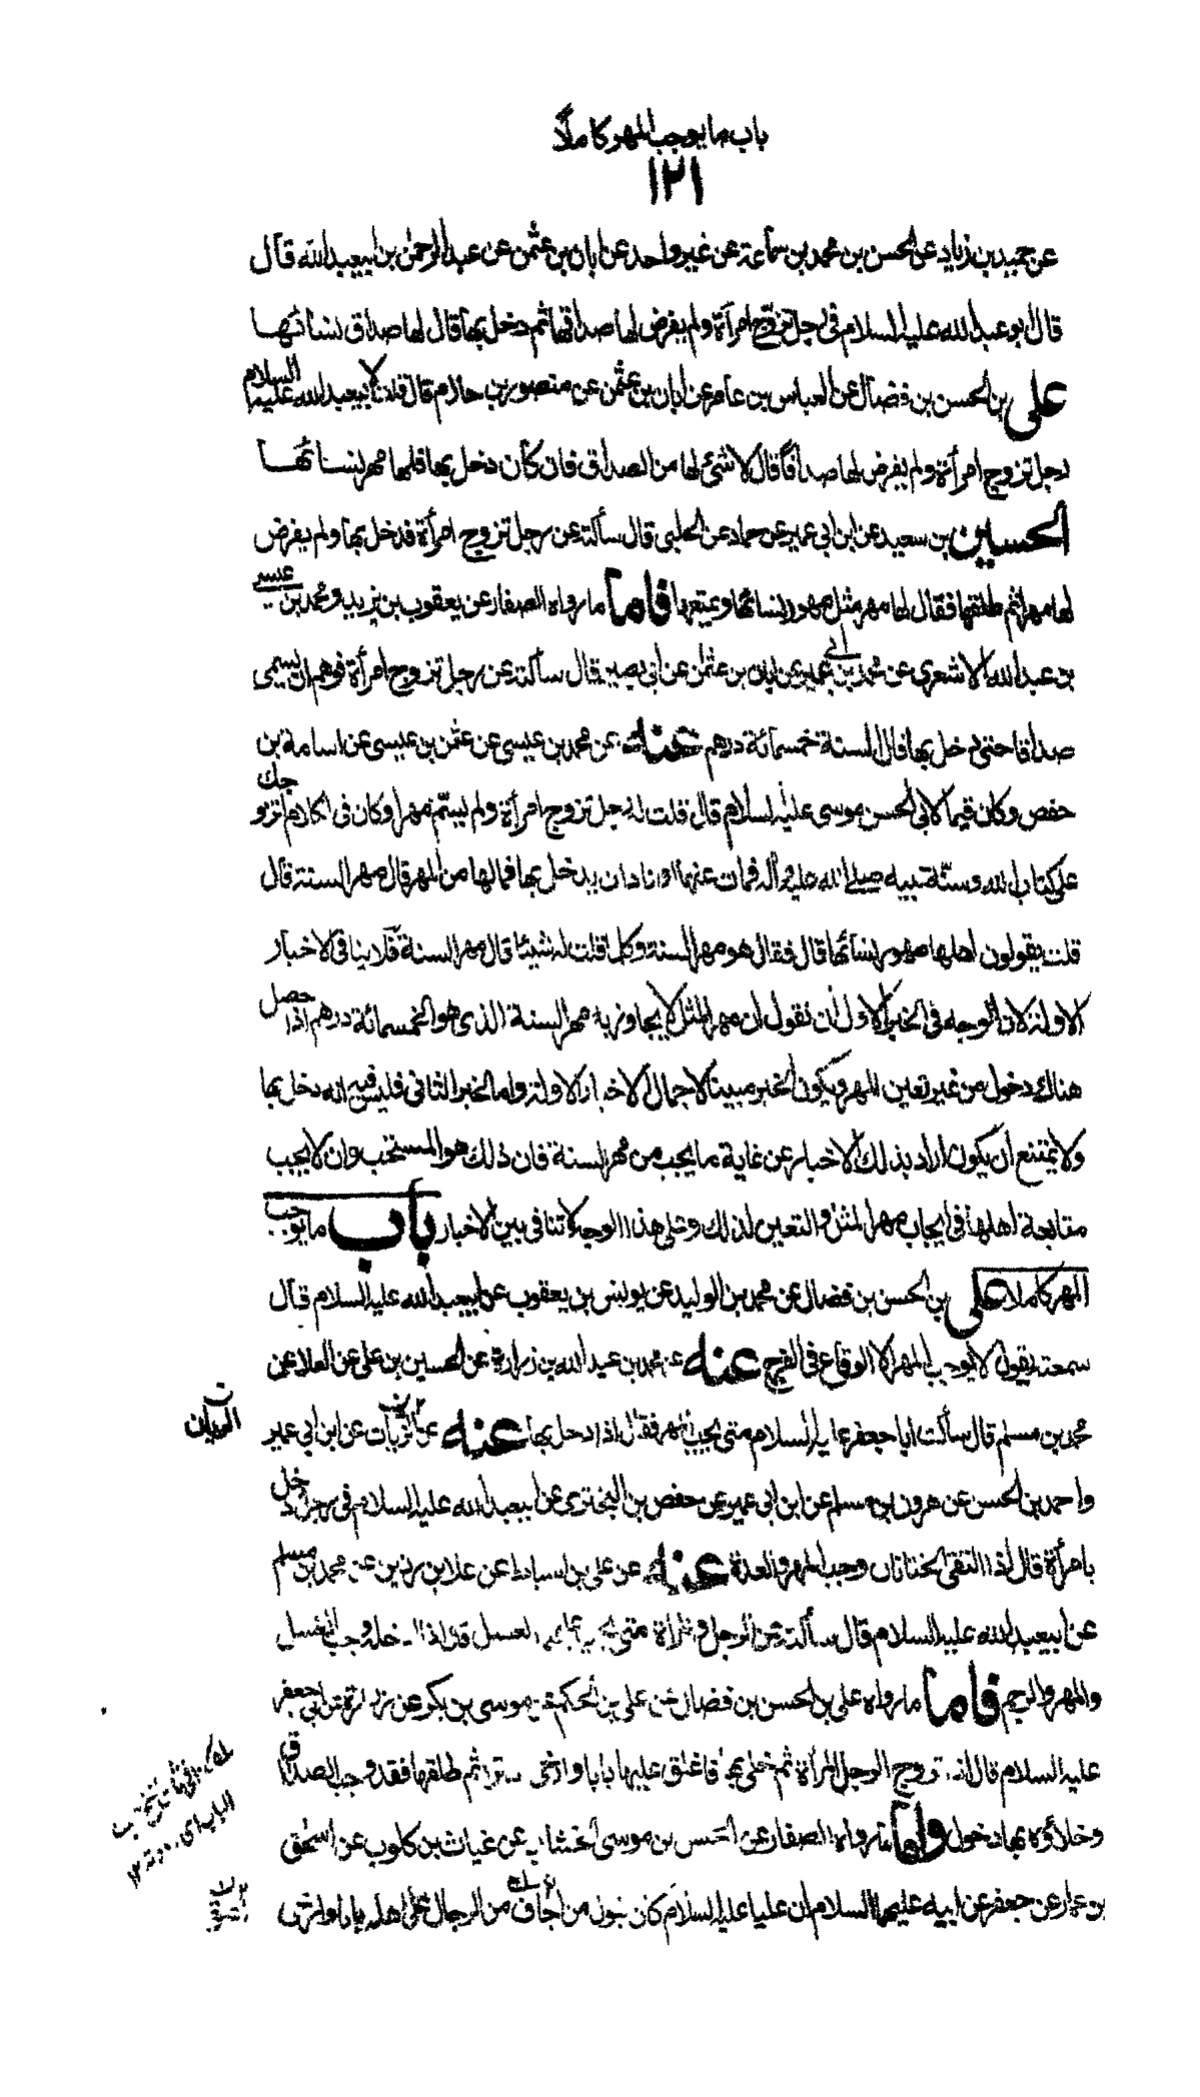 باب ما يوجب المهر كاملا
١٢١
عن حميد بن زياد عن الحسن بن محمد بن سماعة عن غير واحد عن ابان بن عثمن عن عبد الرحمن بن ابيعبد الله قال
قال ابو عبد الله عليه السلام في رجل تزوج امرأة ولم يفرض لها صداقها ثم دخل بها قال لها صداق نسائها
علي بن الحسن بن فضال عن العباس بن عامر عن ابان بن عثمن عن منصور بن حازم قال قلت لابيعبد الله عليه السلام
رجل تزوج امرأة ولم يفرض لها صداقا قال لا شئ لها من الصداق فان كان دخل بها فلها مهر نسائها
الحسين بن سعيد عن ابن ابي عمير عن حماد عن الحلبي قال سألته عن رجل تزوج امرأة فدخل بها ولم يفرض
لها مهرا ثم طلقها فقال لها مهر مثل مهور نسائها ويمتعها فاما ما رواه الصفار عن يعقوب بن يزيد ومحمد بن عيسى
بن عبد الله الاشعري عن محمد بن ابي عمير عن ابان بن عثمان عن ابي بصير قال سألته عن رجل تزوج امرأة فوهم ان يسمى
صداقا حتى دخل بها قال السنة خمسمائة درهم عنه عن محمد بن عيسى عن عثمن بن عيسى عن اسامة بن
حفص وكان قيما لابي الحسن موسى عليه السلام قال قلت له رجل تزوج امرأة ولم يسم مهرا وكان في الكلام اتزوجك
على كتاب الله وسنة نبيه صلى الله عليه وآله فمات عنها او اراد ان يدخل بها فما لها من المهر قال مهر السنة قال
قلت يقولون اهلها مهور نسائها قال فقال هو مهر السنة وكلما قلت له شيئا قال مهر السنة فلا ينافي الاخبار
الاولة لان الوجه في الخبر الاول ان نقول ان مهر المثل لا يجاوز به مهر السنة الذي هو الخمسمائة درهم اذا حصل
هناك دخول من غير تعيين المهر ويكون الخبر مبينا لاجمال الاخبار الاولة واما الخبر الثاني فليس فيه انه دخل بها
ولا يمتنع ان يكون اراد بذلك الاخبار عن غاية ما يجب من مهر السنة فان ذلك هو المستحب وان لا يجب
متابعة اهلها في ايجاب مهر المثل والتعيين لذلك وعلى هذا الوجه لا تنافي بين الاخبار باب ما يوجب
المهر كاملا علي بن الحسن بن فضال عن محمد بن الوليد عن يونس بن يعقوب عن ابيعبد الله عليه السلام قال
سمعته يقول لا يوجب المهر الا الوقاع في الفرج عنه عن محمد بن عبد الله بن زرارة عن الحسين بن علي عن العلا عن
محمد بن مسلم قال سألت ابا جعفر عليه السلام متى يجب المهر فقال اذا دخل بها عنه عن الزيات عن ابن ابي عمير
واحمد بن الحسن عن هرون بن مسلم عن ابن ابي عمير عن حفص بن البختري عن ابيعبد الله عليه السلام في رجل دخل
بامرأة قال اذا التقى الختانان وجب المهر والعدة عنه عن علي بن اسباط عن علا بن رزين عن محمد بن مسلم
عن ابيعبد الله عليه السلام قال سألته عن الرجل والمرأة متى يجب عليهما الغسل قال اذا ادخله وجب الغسل
والمهر والرجم فاما ما رواه علي بن الحسن بن فضال عن علي بن الحكم عن موسى بن بكر عن زرارة عن ابي جعفر
عليه السلام قال اذا تزوج الرجل المرأة ثم خلى بها فاغلق عليها بابا وارخى سترا ثم طلقها فقد وجب الصداق
وخلاؤه بها دخول واما ما رواه الصفار عن الحسن بن موسى الخشاب عن غياث بن كلوب عن اسحق
بن عمار عن جعفر عن ابيه عليهما السلام ان عليا عليه السلام كان يقول من اجاف من الرجال على اهله بابا او ارخى